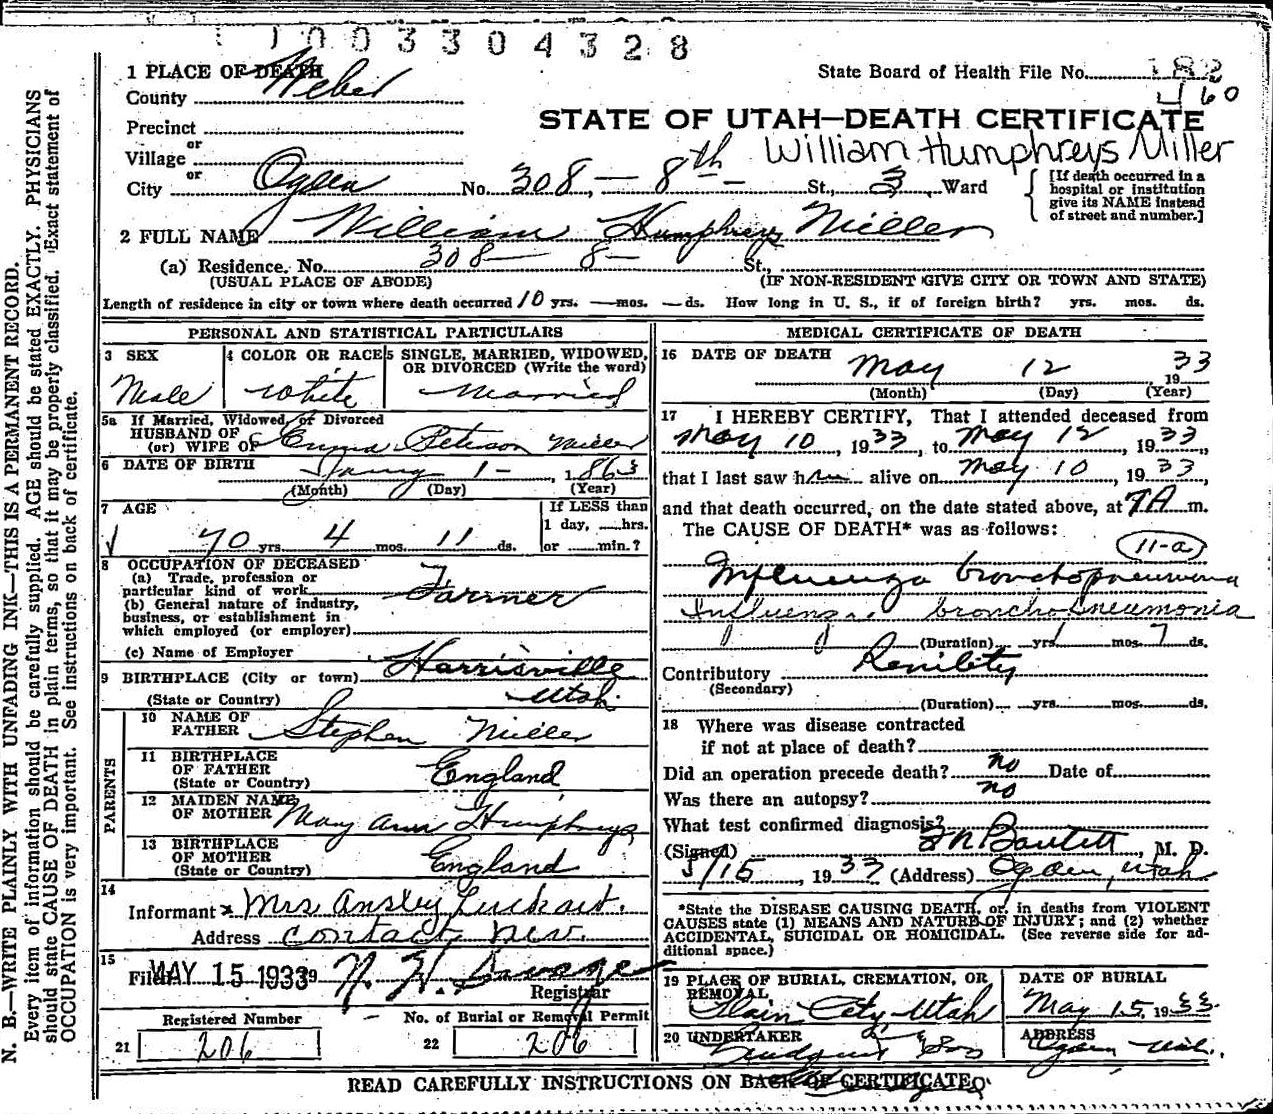 1003304328
1 PLACE OF DEATH
County Weber
State Board of Health File No. 182
460
Precinct
or
Village
or
STATE OF UTAH—DEATH CERTIFICATE
William Humphreys Miller
City Ogden No. 308, — 8th — St., 3 Ward
[If death occurred in a hospital or institution give its NAME instead of street and number.]
2 FULL NAME William Humphreys Miller
(a) Residence. No. 308— 8— St.,
(USUAL PLACE OF ABODE) (IF NON-RESIDENT GIVE CITY OR TOWN AND STATE)
Length of residence in city or town where death occurred 10 yrs. — mos. — ds. How long in U. S., if of foreign birth? yrs. mos. ds.
PERSONAL AND STATISTICAL PARTICULARS
3 SEX
Male
4 COLOR OR RACE
White
5 SINGLE, MARRIED, WIDOWED, OR DIVORCED (Write the word)
Married
5a If Married, Widowed, or Divorced
HUSBAND OF
(or) WIFE OF Emma Peterson Miller
6 DATE OF BIRTH 1— , 1863
(Month) (Day) (Year)
7 AGE
70 yrs. 4 mos. 11 ds.
If LESS than
1 day, ....hrs.
or ........min.?
8 OCCUPATION OF DECEASED
(a) Trade, profession or
particular kind of work Farmer
(b) General nature of industry,
business, or establishment in
which employed (or employer)
(c) Name of Employer
9 BIRTHPLACE (City or town) Harrisville
(State or Country) Utah
PARENTS
10 NAME OF
FATHER Stephen Miller
11 BIRTHPLACE
OF FATHER England
(State or Country)
12 MAIDEN NAME
OF MOTHER Mary Ann Humphreys
13 BIRTHPLACE
OF MOTHER England
(State or Country)
14
Informant x Mrs Ansley
Address
15
Filed MAY 15 1933 9 N. H. Savage
Registrar
Registered Number
21 206
No. of Burial or Removal Permit
22 206
MEDICAL CERTIFICATE OF DEATH
16 DATE OF DEATH May 12 1933
(Month) (Day) (Year)
17 I HEREBY CERTIFY, That I attended deceased from
May 10, 1933, to May 12, 1933,
that I last saw him alive on May 10, 1933,
and that death occurred, on the date stated above, at 7A m.
The CAUSE OF DEATH* was as follows:
11-a
Influenza bronchopneumonia
Influenza bronchopneumonia
(Duration) yrs. mos. 7 ds.
Contributory
(Secondary)
(Duration) yrs. mos. ds.
18 Where was disease contracted
if not at place of death?
Did an operation precede death? no Date of
Was there an autopsy? no
What test confirmed diagnosis?
(Signed) Bartlett, M. D.
5/15, 1933 (Address) Ogden, Utah
*State the DISEASE CAUSING DEATH, or, in deaths from VIOLENT
CAUSES state (1) MEANS AND NATURE OF INJURY; and (2) whether
ACCIDENTAL, SUICIDAL OR HOMICIDAL. (See reverse side for ad-
ditional space.)
19 PLACE OF BURIAL, CREMATION, OR
REMOVAL
Plain City Utah
DATE OF BURIAL
May 15, 1933
20 UNDERTAKER
Lindquist & Sons
ADDRESS
Ogden Utah.
READ CAREFULLY INSTRUCTIONS ON BACK OF CERTIFICATE
N. B.—WRITE PLAINLY WITH UNFADING INK—THIS IS A PERMANENT RECORD.
Every item of information should be carefully supplied. AGE should be stated EXACTLY. PHYSICIANS
should state CAUSE OF DEATH in plain terms, so that it may be properly classified. Exact statement of
OCCUPATION is very important. See instructions on back of certificate.